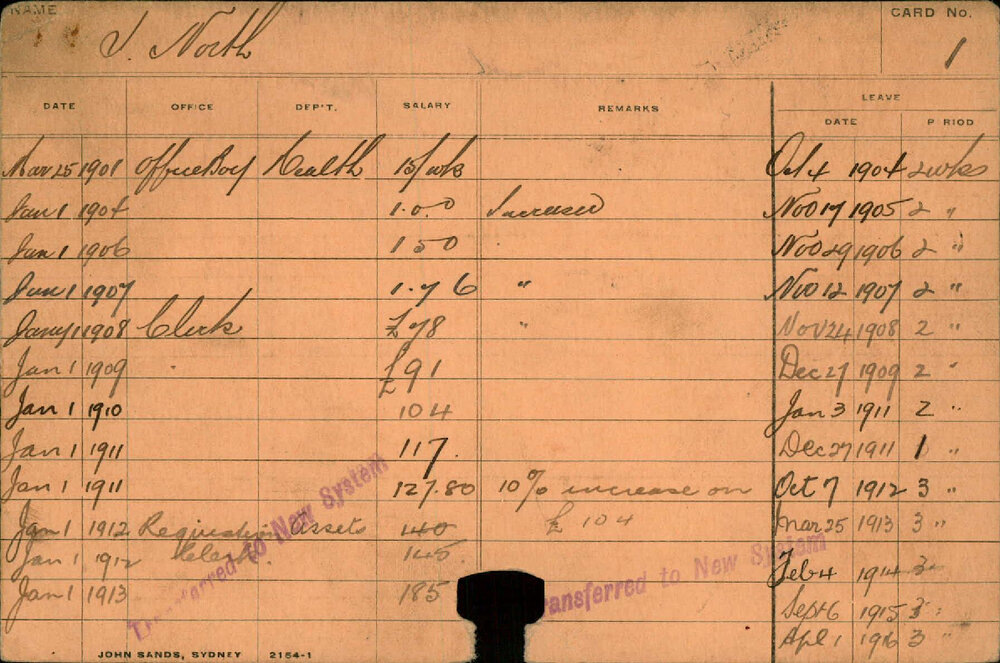 NAME CARD No.
J. North 1
DATE OFFICE DEP'T. SALARY REMARKS LEAVE
DATE P RIOD
Mar 25 1901 Office Boy Health 15/ wk Oct 4 1904 2 wks
Jan 1 1904 1.0.0 Increased Nov 17 1905 2 "
Jan 1 1906 1 5 0 Nov 29 1906 2 "
Jan 1 1907 1.7 6 " Nov 12 1907 2 "
Jany 1 1908 Clerk £78 " Nov 24 1908 2 "
Jan 1 1909 £91 Dec 27 1909 2 "
Jan 1 1910 104 Jan 3 1911 2 "
Jan 1 1911 117. Dec 27 1911 1 "
Jan 1 1911 127.80 10% increase on Oct 7 1912 3 "
Jan 1 1912 Assets 140 £104 Mar 25 1913 3 "
Jan 1 1912 Clerk 145 Feb 4 1914 3 "
Jan 1 1913 185 Sept 6 1915 3 "
Apl 1 1916 3 "
Transferred to New System
ransferred to New System
JOHN SANDS, SYDNEY 2154-1